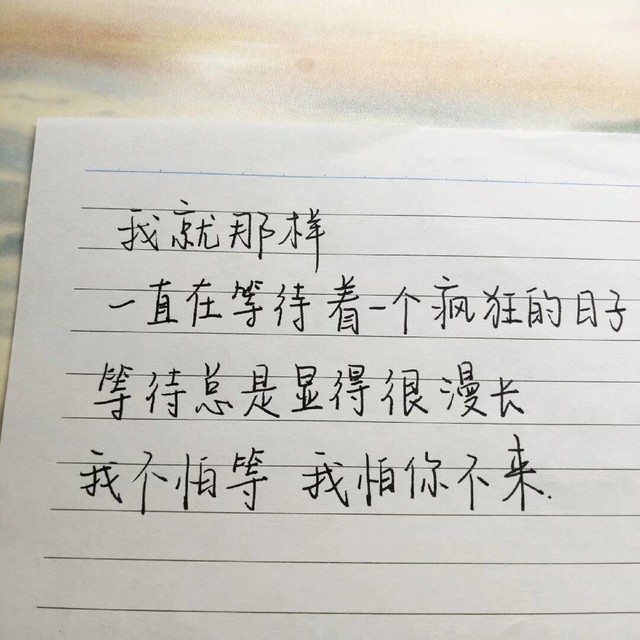 我就那样
一直在等待着一个疯狂的日子
等待总是显得很漫长
我不怕等 我怕你不来.